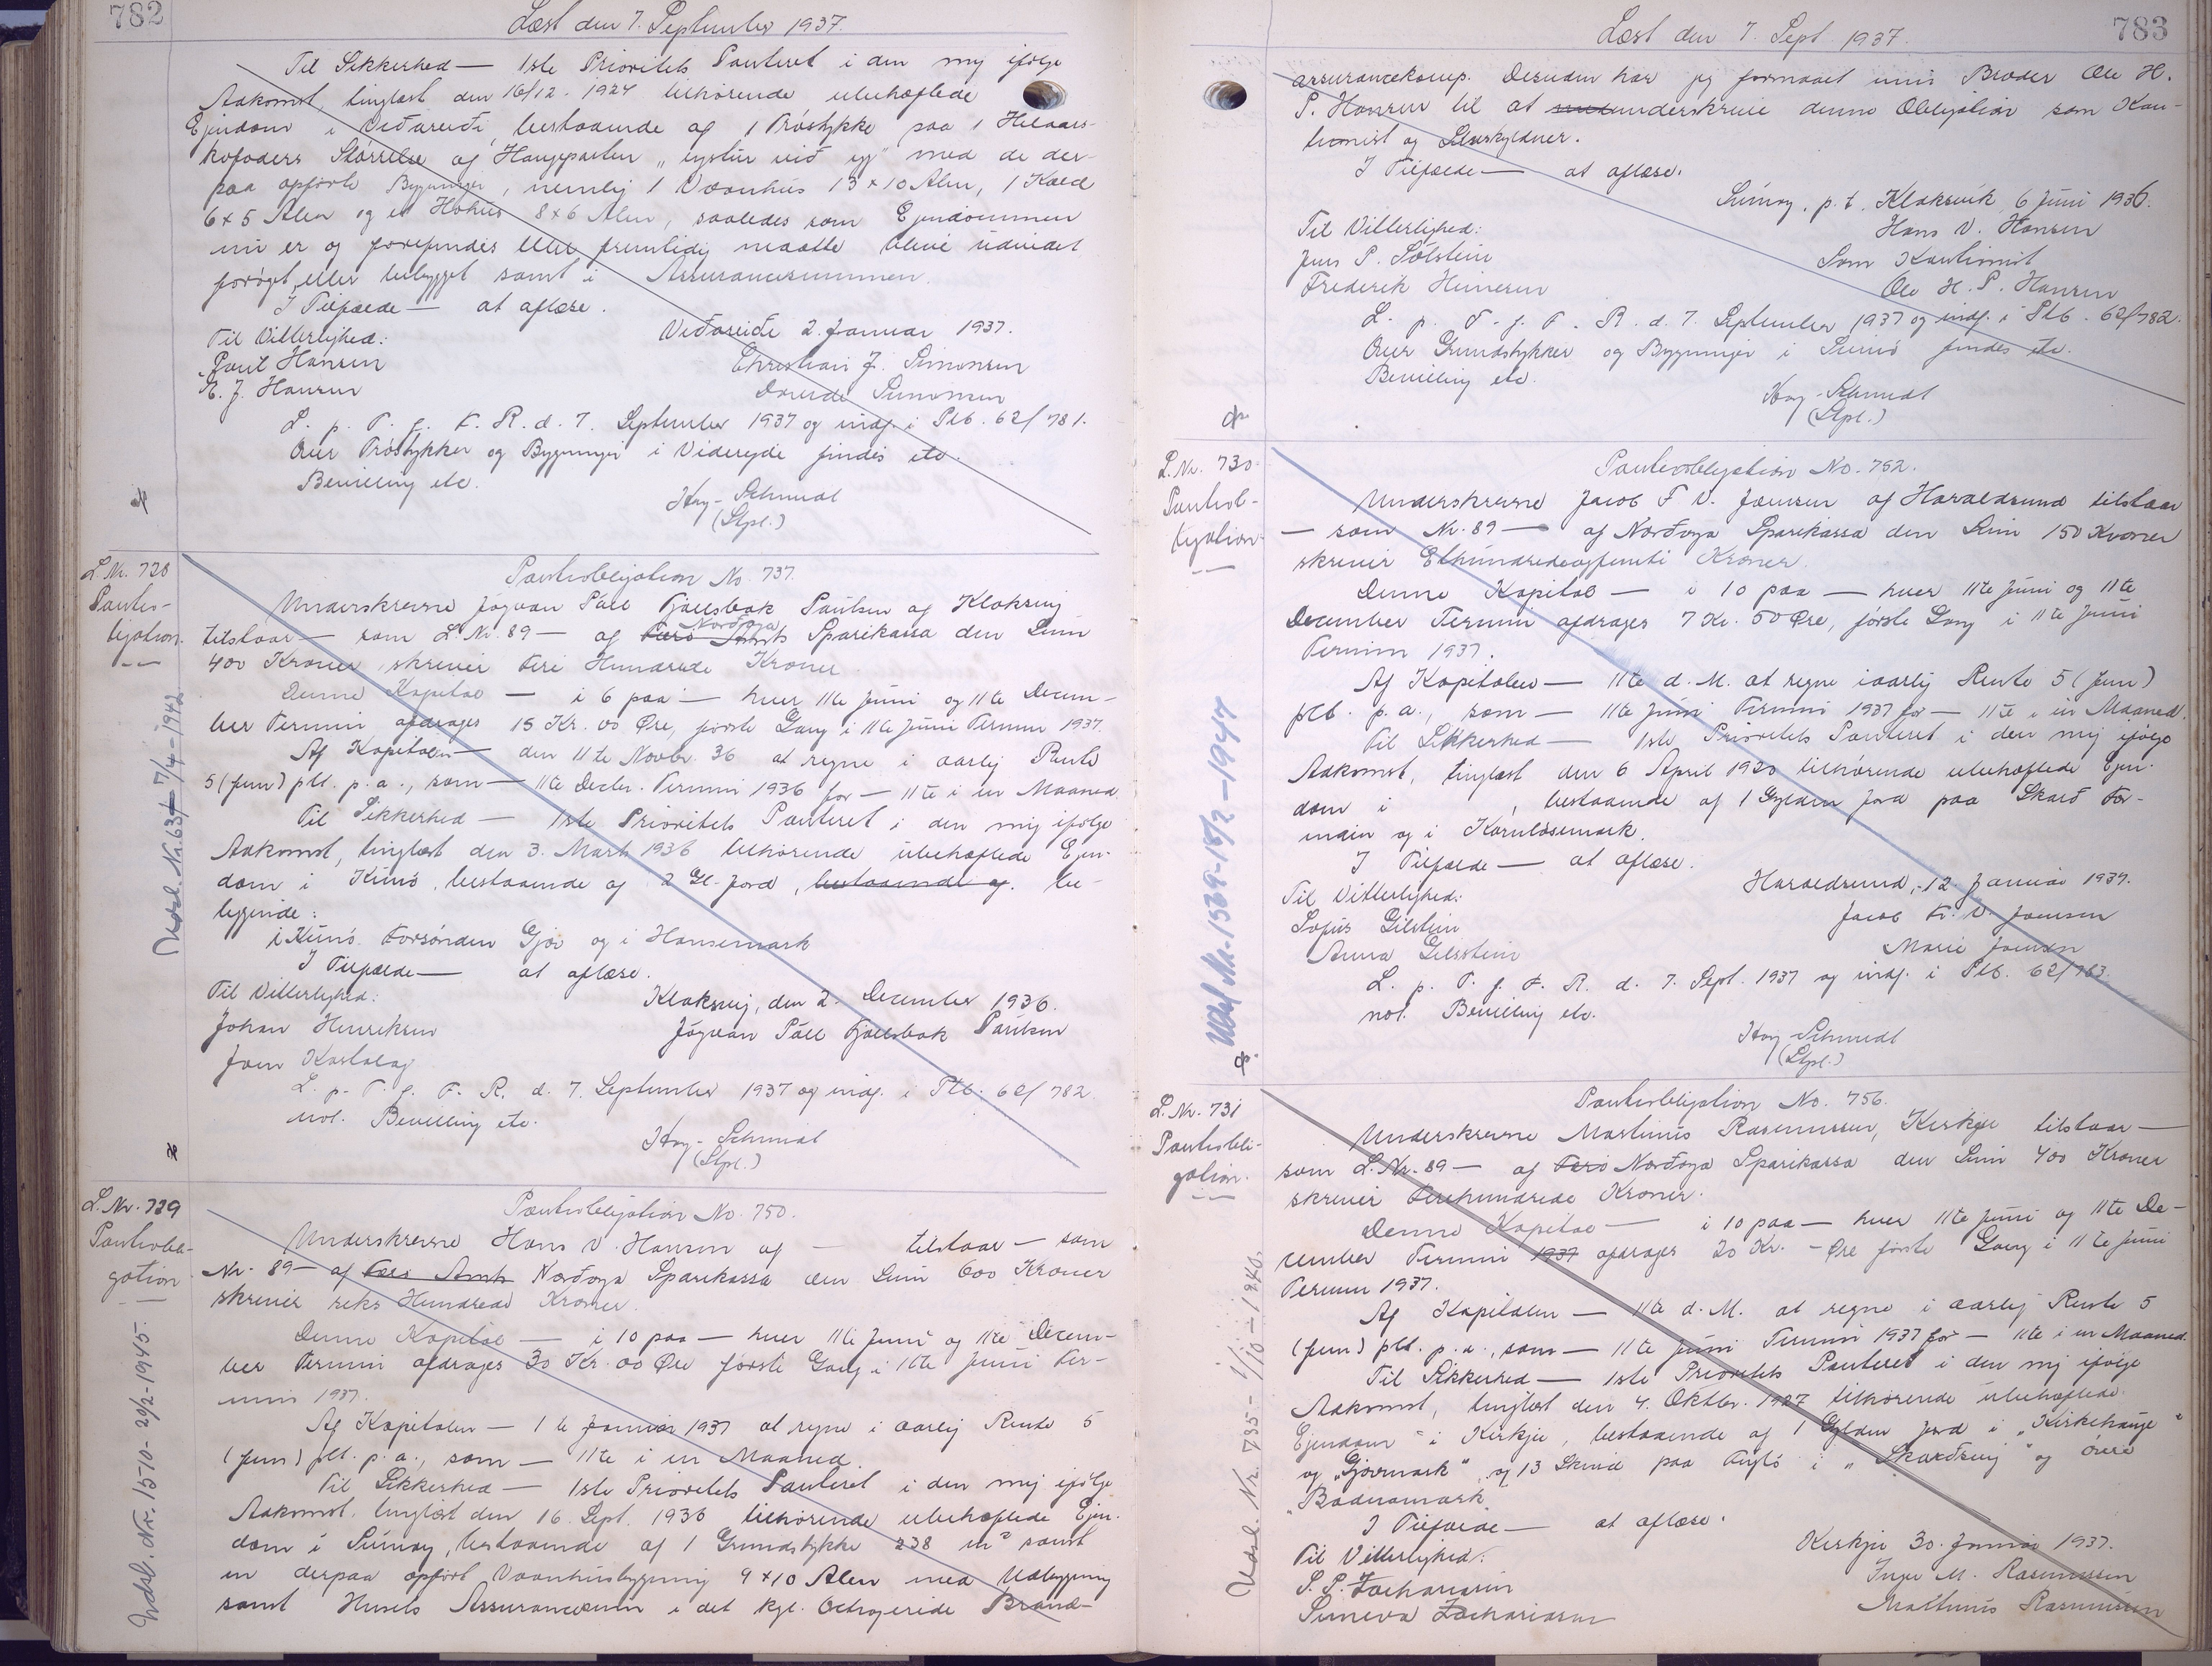 782
Læst den 7. September 1937.
Til Sikkerhed — 1ste Prioritets Panteret i den mig ifølge
Adkomst, tinglæst den 16/12 - 1924 tilhørende ubehæftede
Ejendom i Viðareiði, bestaaende af 1 Trøstykke paa 1
kofoders Størrelse af Haugeparten „ eystur við " med de der-
paa opførte Bygninger, nemlig 1 Vaanhus 13 x 10 Alen, 1 Kæld
6 x 5 Alen og et Hohus 8 x 6 Alen, saaledes som Ejendommen
nu er og forefindes eller fremtidig maatte blive udvidet
forøget eller bebygget samt i Assurancesummen.
I Tilfælde — at aflæse.
Til Vitterlighed: Viðareiði 2. Januar 1937.
Poul Hansen Christian J. Simonsen
J. Hansen Simonsen
L. p. T. f. F. R. d. 7. September 1937 og indf. i Ptb. 62/781.
Over Trøstykker og Bygninger i Videreyde findes etc.
Bevilling etc.
Hay-Schmidt
(Stpl.)
L. Nr. 728
Panteob-
ligation.
Pantobligation No. 737.
Underskrevne Jógvan Páll Fjallsbak Poulsen af Klaksvig
tilstaar — som L. Nr. 89 — af Færø Amts Norðoya Sparikassa den Sum
400 Kroner, skriver Fire Hundrede Kroner.
Denne Kapital — i 6 paa — hver 11te Juni og 11te Decem-
ber Termin afdrages 15 Kr. 00 Øre, første Gang i 11te Juni Termin 1937.
Af Kapitalen — den 11te Novbr. 36 at regne i aarlig Rente
5 (fem) pCt. p. a., som — 11te Decbr. Termin 1936 for — 11te i en Maaned
Til Sikkerhed — 1ste Prioritets Panteret i den mig ifølge
Adkomst, tinglæst den 3. Marts 1936 tilhørende ubehæftede Ejen-
dom i Kunø, bestaaende af 2 Gl. Jord, bestaaende af. be-
liggende:
i Kunø Forsónden Gjov og i Hansemark
I Tilfælde — at aflæse.
Til Vitterlighed: Klaksvig, den 2. December 1936.
Johan Henriksen Jógvan Páll Fjallsbak Poulsen
Joen
L. p. T. f. F. R. d. 7. September 1937 og indf. i Ptb. 62/782.
not. Bevilling etc.
Hay-Schmidt
(Stpl.)
Udsl. Nr. 634 7/4 - 1942
L. Nr. 729
Panteobli-
gation
Pantobligation No. 750.
Underskrevne Hans V. Hansen af — tilstaar — som
Nr. 89 — af Færø Amts Norðoya Sparikassa den Sum 600 Kroner
skriver seks Hundrede Kroner.
Denne Kapital — i 10 paa — hver 11te Juni og 11te Decem-
ber Termin afdrages 30 Kr. 00 Øre første Gang i 11te Juni Ter-
min 1937.
Af Kapitalen — 1te Januar 1937 at regne i aarlig Rente 5
(fem) pCt. p. a., som — 11te i en Maaned.
Til Sikkerhed — 1ste Prioritets Panteret i den mig ifølge
Adkomst, tinglæst den 16. Sept. 1936 tilhørende ubehæftede Ejen-
dom i Sumøy, bestaaende af 1 Grundstykke 238 m² samt
en derpaa opført Vaanhusbygning 9 x 10 Alen med Udbygning
samt Husets Assurancesum i det kgl. Octrojerede Brand-
Udsl. Nr. 1510 - 20/2 - 1945.
783
Læst den 7. Sept. 1937.
assurancekomp. Desuden har jeg formaaet min Broder Ole H.
P. Hansen til at underskrive denne Obligation som Kau-
tionist og Selvskyldner.
I Tilfælde — at aflæse.
Sumøy, p. t. Klaksvík, 6 Juni 1936.
Til Vitterlighed: Hans V. Hansen
Jens P. Sólstein Som Kautionist
Frederik Heinesen Ole H. P. Hansen
L. p. T. f. F. R. d. 7. September 1937 og indf. i Ptb. 62/782.
Over Grundstykker og Bygninger i Sumø findes etc.
Bevilling etc.
Hay-Schmidt
(Stpl.)
L. Nr. 730
Panteob-
ligation
Pantobligation No. 752.
Underskrevne Jacob F. V. Joensen af Haraldssund tilstaar
— som Nr. 89 — af Norðoya Sparikassa den Sum 150 Kroner
skriver Ethundredeogfemti Kroner.
Denne Kapital — i 10 paa — hver 11te Juni og 11te
December Termin afdrages 7 Kr. 50 Øre, første Gang i 11te Juni
Termin 1937.
Af Kapitalen — 11te d. M. at regne i aarlig Rente 5 (fem)
pCt. p. a., som — 11te Juni Termin 1937 for — 11te i en Maaned.
Til Sikkerhed — 1ste Prioritets Panteret i den mig ifølge
Adkomst, tinglæst den 6 April 1920 tilhørende ubehæftede Ejen-
dom i , bestaaende af 1 Gylden Jord paa Skarð For-
indin og i Kornløsumark.
I Tilfælde — at aflæse.
Til Vitterlighed: Haraldssund, 12 Januar 1937.
Sofus Gilstein Jacob Fr. V. Joensen
Anna Gilsstein Marie Joensen
L. p. T. f. F. R. d. 7. Sept. 1937 og indf. i Ptb. 62/783.
not. Bevilling etc.
Hay-Schmidt
(Stpl.)
Udsl. Nr. 1569 - 18/2 - 1947
L. Nr. 731
Panteobli-
gation.
Pantobligation No. 756.
Underskrevne Martinus Rasmussen, Kirkju tilstaar —
som L. Nr. 89 — af Færø Norðoya Sparikassa den Sum 400 Kroner
skriver Firehundrede Kroner.
Denne Kapital — i 10 paa — hver 11te Juni og 11te De-
cember Termin 1937 afdrages 20 Kr. - Øre første Gang i 11te Juni
Termin 1937.
Af Kapitalen — 11te d. M. at regne i aarlig Rente 5
(fem) pCt. p. a., som — 11te Juni Termin 1937 for — 11te i en Maaned.
Til Sikkerhed — 1ste Prioritets Panteret i den mig ifølge
Adkomst, tinglæst den 4. Oktbr. 1927 tilhørende ubehæftede
Ejendom i Kirkju, bestaaende af 1 Gylden Jord i „Kirkehauge"
og „Gjovmark", og 13 Skind paa Fuglø i „Skarðsvig" og övre
„Bødnamark.
I Tilfælde — at aflæse.
Til Vitterlighed: Kirkju 30. Januar 1937.
S. P. Zachariasen Inger M. Rasmussen
Suneva Zachariasen Martinus Rasmussen
Udsl. Nr. 735 - 1/10 - 1940.